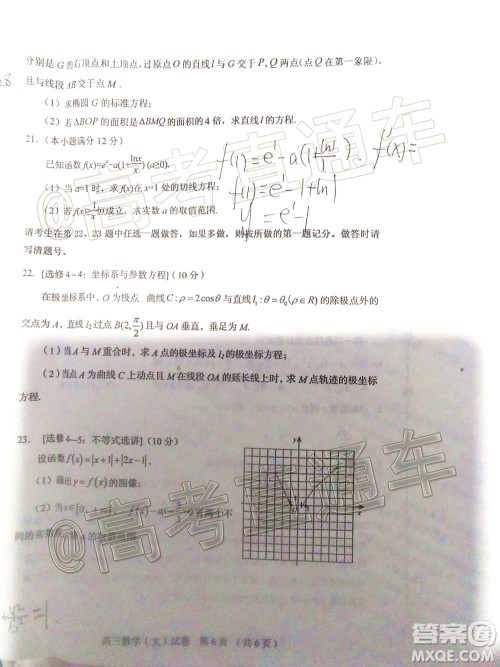 分别是 G 的右顶点和上顶点，过原点 O 的直线 l 与 G 交于 P，Q 两点（点 Q 在第一象限），
且与线段 AB 交于点 M．
（1）求椭圆 G 的标准方程；
（2）若 ΔBOP 的面积是 ΔBMQ 的面积的 4 倍，求直线 l 的方程．
21.（本小题满分 12 分）
已知函数 f(x)=eˣ-a(1+lnx/x) (a≥0).
（1）当 a=1 时，求 f(x)在 x=1 处的切线方程；
（2）若 f(x)≥1/x 恒成立，求实数 a 的取值范围．
f(1)=e¹-a(1+ln1/1).
f'(x)=
f(1)=e¹-1+ln1
y=e¹-1
请考生在第 22、23 题中任选一题做答，如果多做，则按所做的第一题记分。做答时请
写清题号。
22. [选修 4-4：坐标系与参数方程]（10 分）
在极坐标系中，O 为极点．曲线 C:ρ=2cosθ 与直线 l₁:θ=θ₀(ρ∈R) 的除极点外的
交点为 A，直线 l₂ 过点 B(2,π/2) 且与 OA 垂直，垂足为 M．
（1）当 A 与 M 重合时，求 A 点的极坐标及 l₂ 的极坐标方程；
（2）当 A 为曲线 C 上动点且 M 在线段 OA 的延长线上时，求 M 点轨迹的极坐标
方程．
23. [选修 4-5：不等式选讲]（10 分）
设函数 f(x)=|x+1|+|2x-1|．
（1）画出 y=f(x) 的图像；
（2）当 x∈[0,+∞)，
有两个不
同的实数
y
x
高三数学（文）试卷 第 6 页 （共 6 页）
@高考直通车
@高考直通车
答案圈
MXQE.COM